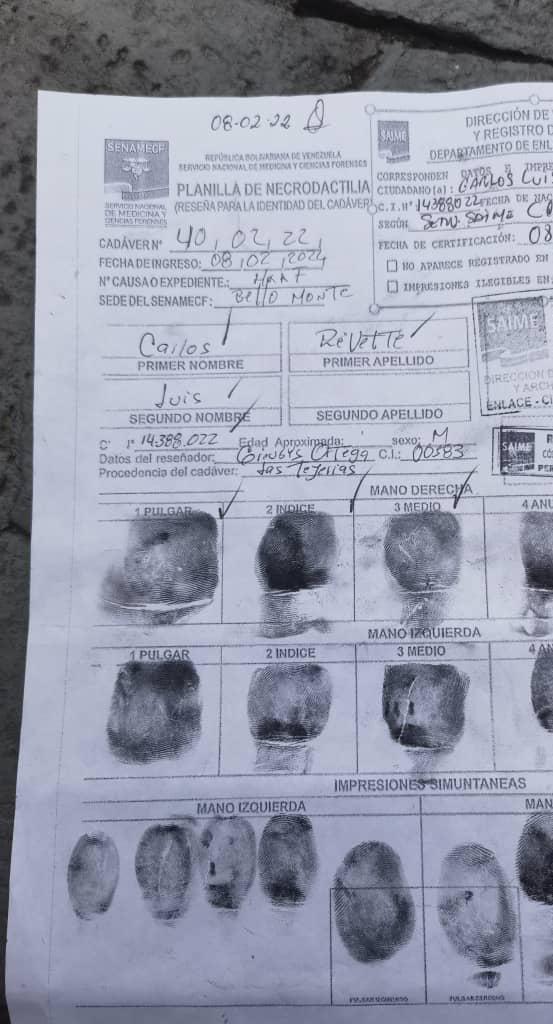 08-02-22
SENAMECF
SERVICIO NACIONAL
DE MEDICINA Y
CIENCIAS FORENSES
REPÚBLICA BOLIVARIANA DE VENEZUELA
SERVICIO NACIONAL DE MEDICINA Y CIENCIAS FORENSES
PLANILLA DE NECRODACTILIA
(RESEÑA PARA LA IDENTIDAD DEL CADÁVER)
CADÁVER N° 40, 02, 22,
FECHA DE INGRESO: 08, 02, 2022
N° CAUSA O EXPEDIENTE:
SEDE DEL SENAMECF: Bello Monte
SAIME
DIRECCIÓN DE
Y REGISTRO D
DEPARTAMENTO DE ENL
CORRESPONDEN DATOS E IMPRE
CIUDADANO (a): CARLOS LUIS
C.I. N° 14388022 FECHA DE NAC
SEGÚN SAIME
FECHA DE CERTIFICACIÓN: 08
NO APARECE REGISTRADO EN
IMPRESIONES ILEGIBLES EN
Carlos
PRIMER NOMBRE
Revette
PRIMER APELLIDO
Luis
SEGUNDO NOMBRE
SEGUNDO APELLIDO
SAIME
DIRECCIÓN D
Y ARCH
ENLACE - CI
14.388.022 Edad Aproximada: sexo: M
Datos del reseñador: Ortega C.I.: 00383
Procedencia del cadáver: Las Tejerias
SAIME
MANO DERECHA
1 PULGAR 2 INDICE 3 MEDIO 4 ANU
MANO IZQUIERDA
1 PULGAR 2 INDICE 3 MEDIO 4 AN
IMPRESIONES SIMUNTANEAS
MANO IZQUIERDA MAN
PULGAR IZQUIERDO PULGAR DERECHO